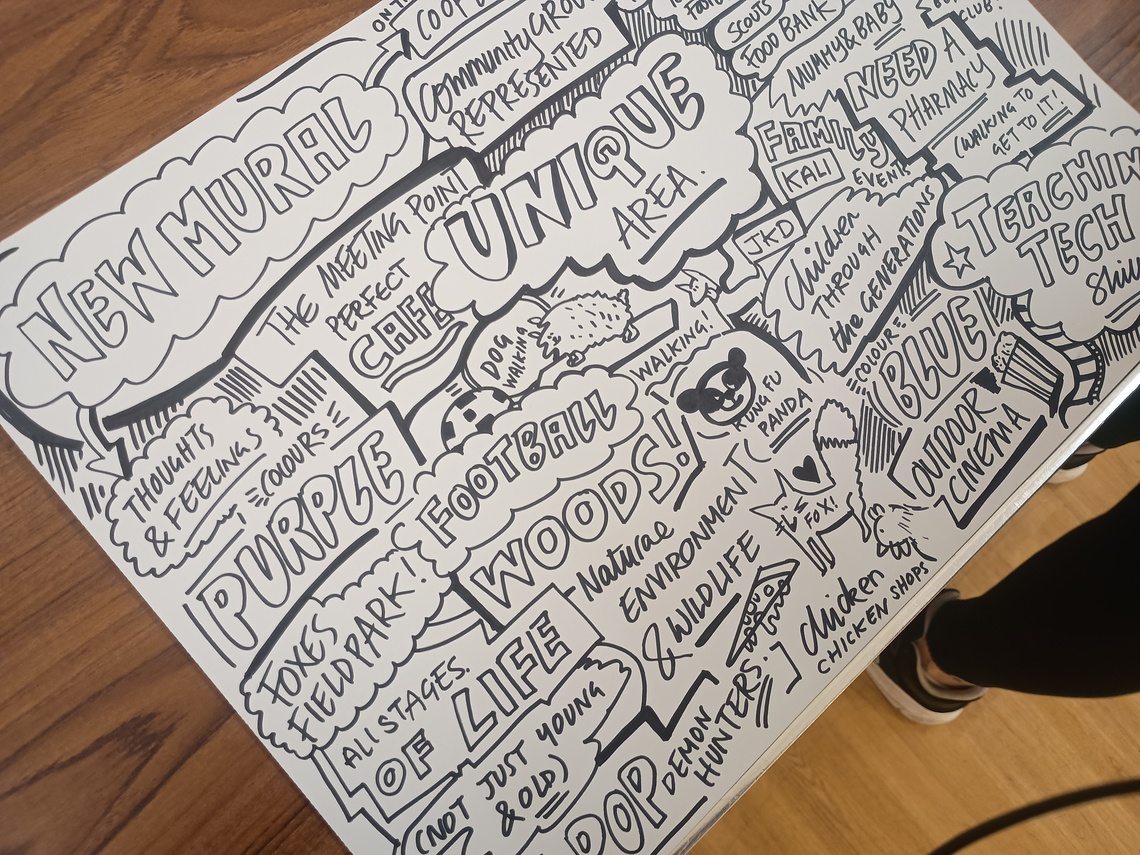 NEW MURAL
ON TO
COOP
Community GROU
REPRESENTED
SCOUTS
FOOD BANK
MUMMY & BABY
CLUB!
NEED A
PHARMACY
(WALKING TO
GET TO IT!
THE MEETING POINT
PERFECT
CAFE
UNIQUE
AREA.
FAMILY
EVENT
KALI
JKD
Children
THROUGH
the GENERATIONS
TEACHIN
TECH
THOUGHTS
& FEELINGS
COLOURS
PURPLE
DOG
WALKING
WALKING!
FOOTBALL
WOODS!
KUNG FU
PANDA
COLOUR:
(BLUE)
OUTDOOR
CINEMA
FOXES
FIELD PARK!
Naturae
ENVIRONMENT
& WILDLIFE
FOX!
Chicken
CHICKEN SHOPS
All STAGES.
OF LIFE
(NOT JUST YOUNG
& OLD)
POP
DEMON
HUNTERS.